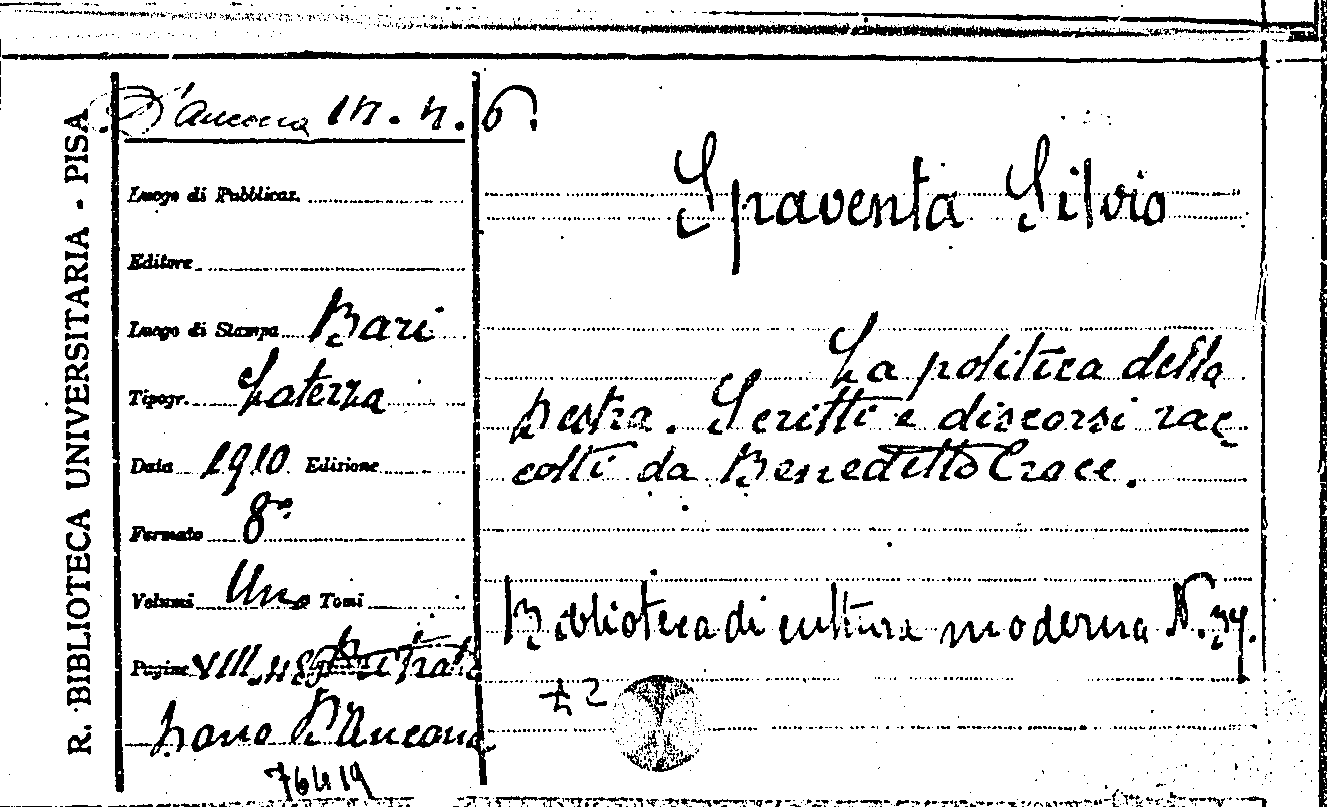 R. BIBLIOTECA UNIVERSITARIA - PISA
D'Ancona 14. 4. 6.
Luogo di Pubblicaz.
Editore
Luogo di Stampa Bari
Tipogr. Laterza
Data 1910 Edizione
Formato 8°
Volumi Uno Tomi
Pagine VIII.
Dono D'Ancona
76419
Spaventa Silvio
La politica della
Destra. Scritti e discorsi rac
colti da Benedetto Croce.
Biblioteca di cultura moderna N. 37.